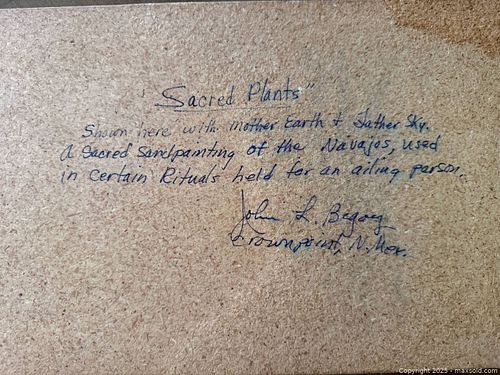 "Sacred Plants"
Shown here with Mother Earth & Father Sky.
A Sacred Sandpainting of the Navajos, used
in Certain Rituals held for an ailing person.
John L. Begay
Crownpoint, N. Mex.
Copyright 2025 - maxsold.com